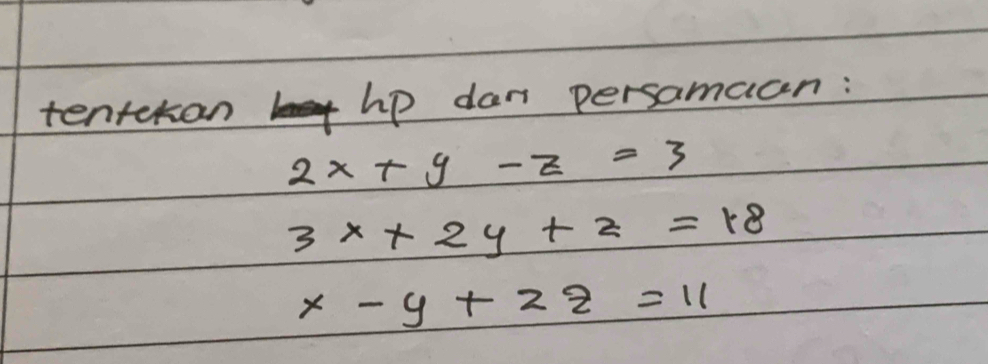 tentekan hp dari persamaan :
2x + y - z = 3
3x + 2y + z = 18
x - y + 2z = 11